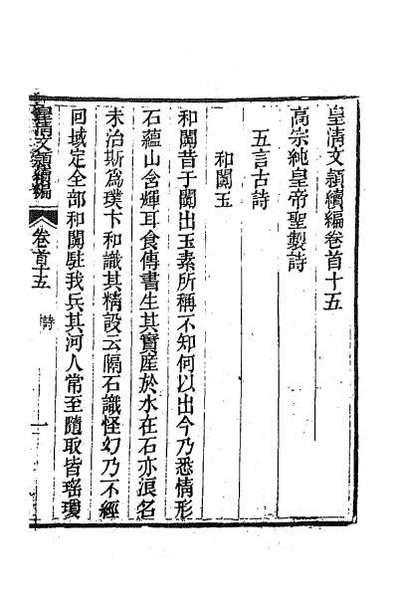 皇清文頴續編卷首十五
高宗純皇帝聖製詩
五言古詩
和闐玉
和闐昔于闐出玉素所稱不知何以出今乃悉情形
石蘊山含輝耳食傳書生其實産於水在石亦浪名
未治斯爲璞卞和識其精設云隔石識怪幻乃不經
回域定全部和闐駐我兵其河人常至隨取皆瑤瓊
皇清文頴續編
卷首十五
詩
一